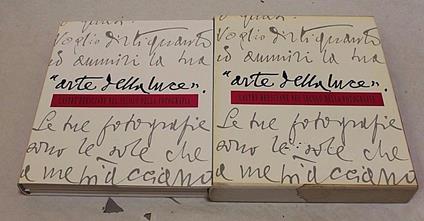 Voglio dirti quanto
io ammiri la tua
"arte della luce".
NEL SECOLO DELLA FOTOGRAFIA
Le tue fotografie
sono le sole che
a me piacciano
Voglio dirti quanto
io ammiri la tua
"arte della luce".
NEL SECOLO DELLA FOTOGRAFIA
Le tue fotografie
sono le sole che
a me piacciano